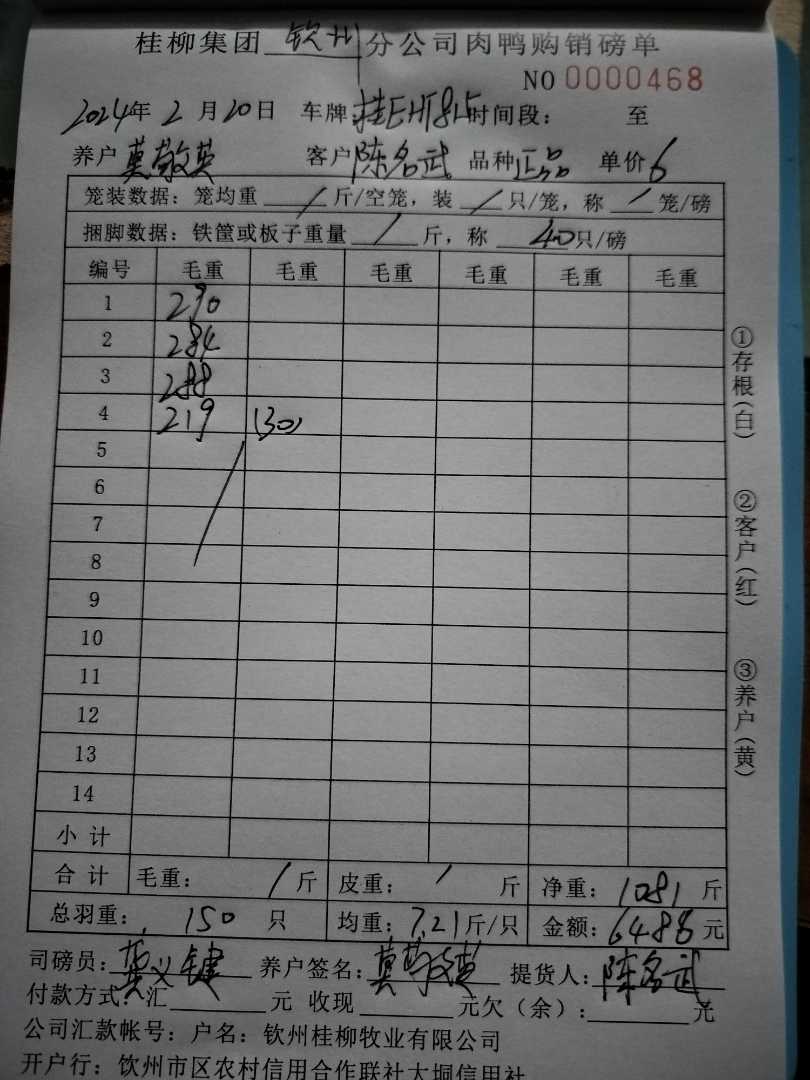 桂柳集团 钦州 分公司肉鸭购销磅单
NO 0000468
2024年 2 月 20日 车牌 时间段： 至
养户 莫敬英 客户 陈名武 品种 正品 单价 6
笼装数据：笼均重 / 斤/空笼，装 / 只/笼，称 / 笼/磅
捆脚数据：铁筐或板子重量 / 斤，称 40只/磅
编号 毛重 毛重 毛重 毛重 毛重 毛重
1 290
2 284
3 288
4 219 (30)
5
6
7
8
9
10
11
12
13
14
小计
合计 毛重： / 斤 皮重： / 斤 净重：1081 斤
总羽重： 150 只 均重：7.21斤/只 金额：6488元
司磅员： 养户签名：莫敬英 提货人：陈名武
付款方式：汇 元 收现 元欠（余）： 元
公司汇款帐号：户名：钦州桂柳牧业有限公司
开户行：钦州市区农村信用合作联社大垌信用社
①存根（白）
②客户（红）
③养户（黄）